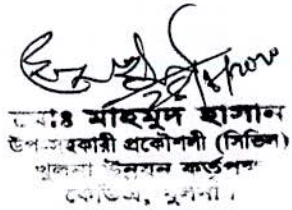 মোঃ মাহমুদ হাসান
উপ-সহকারী প্রকৌশলী (সিভিল)
খুলনা উন্নয়ন কর্তৃপক্ষ
কেডিএ, খুলনা।